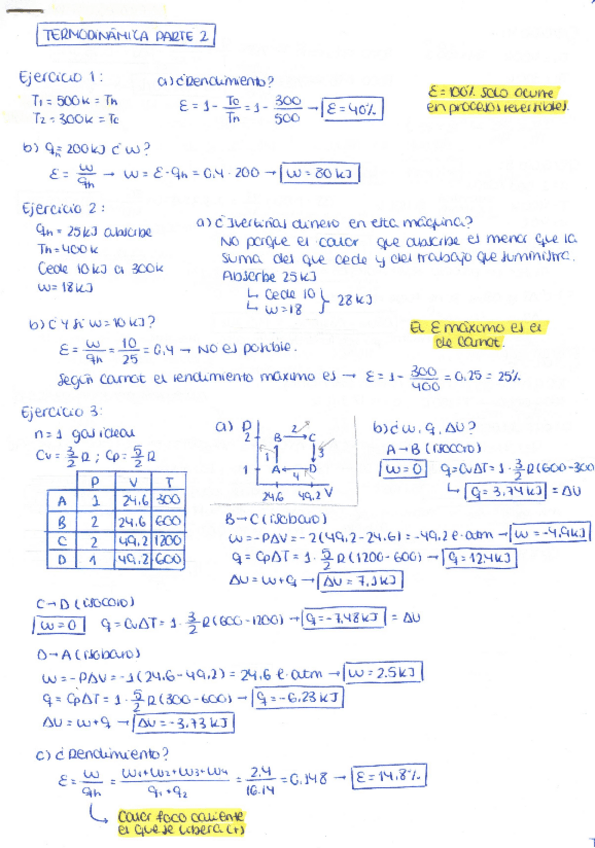 TERMODINÁMICA PARTE 2
Ejercicio 1:
T1 = 500K = Th
T2 = 300K = Tc
a) ¿Rendimiento?
ε = 1 - Tc/Th = 1 - 300/500 → ε = 40%
ε = 100% solo ocurre
en procesos reversibles.
b) qh = 200 kJ ¿w?
ε = w/qh → w = ε · qh = 0.4 · 200 → w = 80 kJ
Ejercicio 2:
qh = 25 kJ absorbe
Th = 400 K
Cede 10 kJ a 300K
w = 18 kJ
a) ¿Invertirías dinero en esta máquina?
No porque el calor que absorbe es menor que la
suma del que cede y del trabajo que suministra.
Absorbe 25 kJ
↳ Cede 10
↳ w = 18 } 28 kJ
b) ¿Y si w = 10 kJ?
ε = w/qh = 10/25 = 0.4 → No es posible.
El ε máximo es el
de Carnot.
Según Carnot el rendimiento máximo es → ε = 1 - 300/400 = 0.25 = 25%
Ejercicio 3:
n = 1 gas ideal
Cv = 3/2 R ; Cp = 5/2 R
P V T
A 1 24.6 300
B 2 24.6 600
C 2 49.2 1200
D 1 49.2 600
a) P
2 B 2 C
1 3
1 A 4 D
24.6 49.2 V
b) ¿w, q, ΔU?
A → B (isocoro)
w = 0 q = CvΔT = 1 · 3/2 R (600 - 300
↳ q = 3.74 kJ = ΔU
B → C (isobaro)
w = -PΔV = -2 (49.2 - 24.6) = -49.2 l·atm → w = -4.9 kJ
q = CpΔT = 1 · 5/2 R (1200 - 600) → q = 12.4 kJ
ΔU = w + q → ΔU = 7.5 kJ
C → D (isocoro)
w = 0 q = CvΔT = 1 · 3/2 R (600 - 1200) → q = -7.48 kJ = ΔU
D → A (isobaro)
w = -PΔV = -1 (24.6 - 49.2) = 24.6 l·atm → w = 2.5 kJ
q = CpΔT = 1 · 5/2 R (300 - 600) → q = -6.23 kJ
ΔU = w + q → ΔU = -3.73 kJ
c) ¿Rendimiento?
ε = w/qh = w1+w2+w3+w4/q1+q2 = 2.4/16.14 = 0.148 → ε = 14.8%
↳ Calor foco caliente
el que se libera (+)